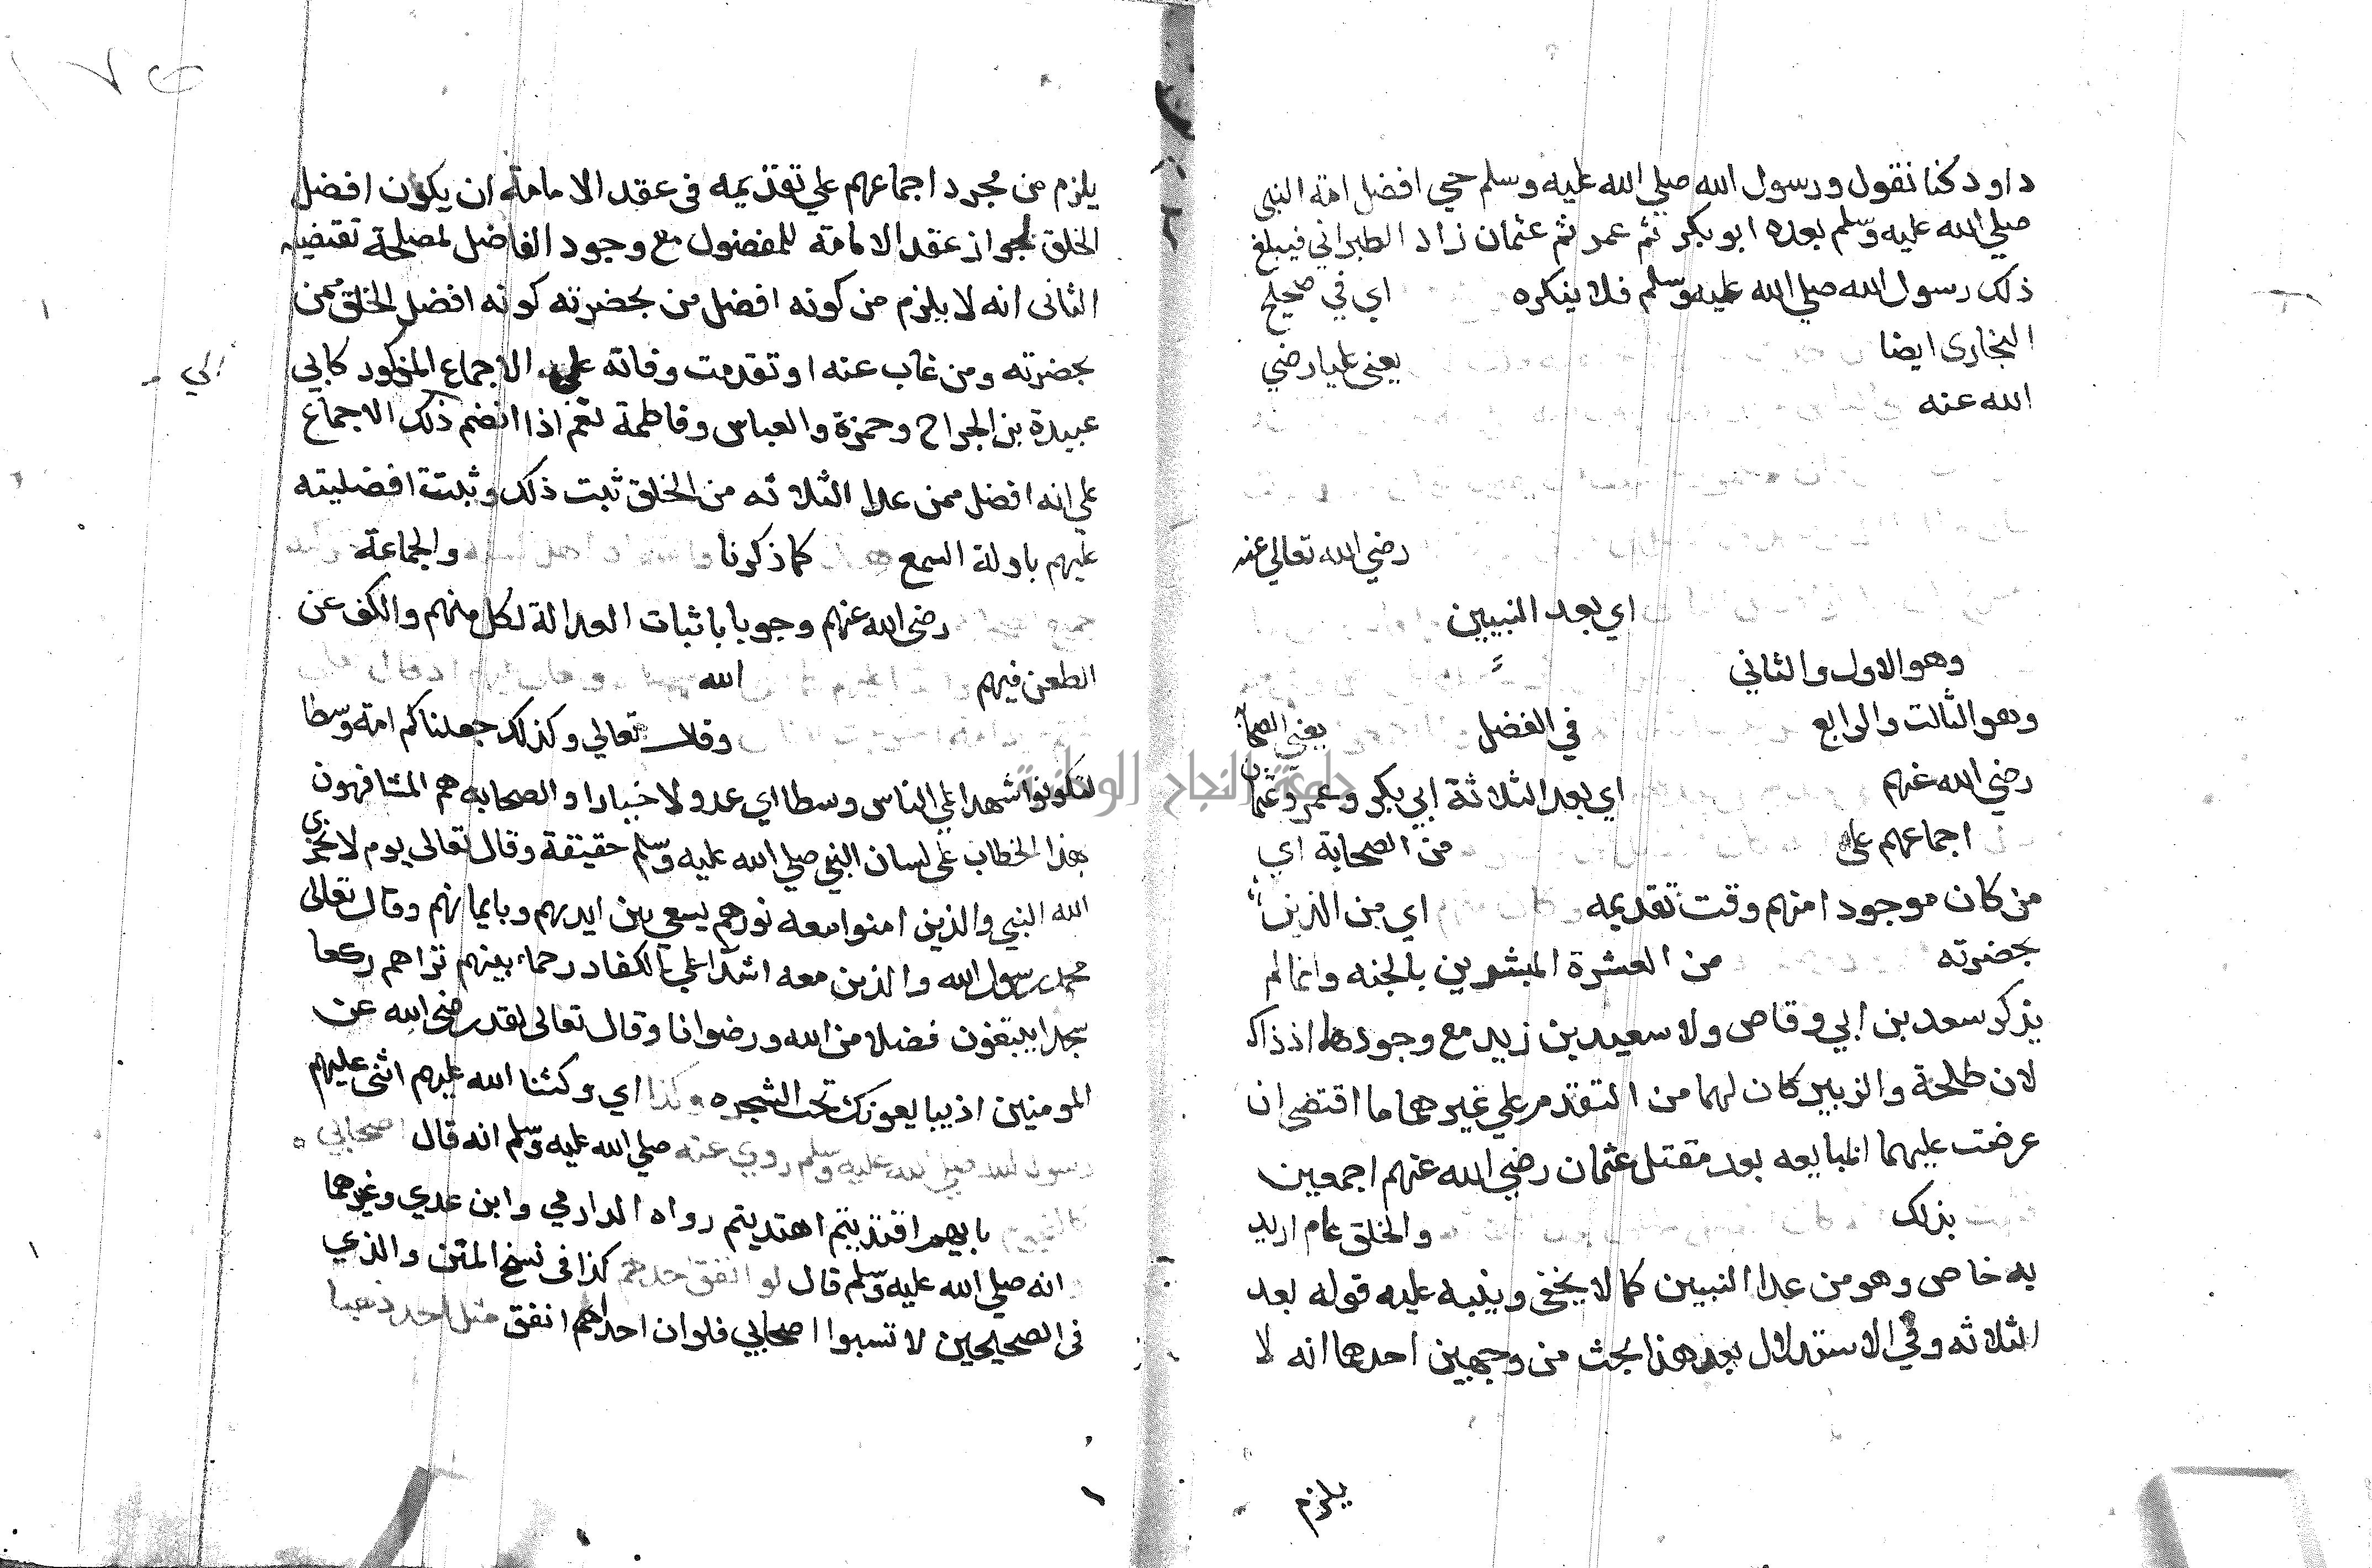 داود كنا نقول ورسول الله صلي الله عليه وسلم حي افضل امة النبي
صلي الله عليه وسلم بعده ابو بكر ثم عمر ثم عثمان زاد الطبراني فيبلغ
ذلك رسول الله صلي الله عليه وسلم فلا ينكره اي في صحيح
البخاري ايضا يعني عليا رضي
الله عنه
رضي الله تعالي عنه
اي بعد النبيين
وهو الاول والثاني
وهو الثالث والرابع في الفضل يعني الصحابة
رضي الله عنهم اي بعد الثلاثة ابي بكر وعمر وعثمان
اجماعهم علي من الصحابة اي
من كان موجودا منهم وقت تقديمه اي من الذين
بحضرته من العشرة المبشرين بالجنه وانما لم
يذكر سعد بن ابي وقاص ولا سعيد بن زيد مع وجودهما اذ ذاك
لان طلحة والزبير كان لهما من التقدم علي غيرهما ما اقتضى ان
عرضت عليهما المبايعه بعد مقتل عثمان رضي الله عنهم اجمعين
بذلك والخلق عام اريد
به خاص وهو من عدا النبيين كما لا يخفى وينبه عليه قوله بعد
الثلاثه وفي الاستدلال بعد هذا بحث من وجهين احدهما انه لا
يلزم
يلزم من مجرد اجماعهم علي تقديمه في عقد الامامة ان يكون افضل
الخلق لجواز عقد الامامة للمفضول مع وجود الفاضل لمصلحة تقتضيه
الثاني انه لا يلزم من كونه افضل من بحضرته كونه افضل الخلق ممن
بحضرته ومن غاب عنه او تقدمت وفاته علي الاجماع المذكور كابي
عبيدة بن الجراح وحمزة والعباس وفاطمة نعم اذا انضم ذلك الاجماع
الي
علي انه افضل ممن عدا الثلاثه من الخلق ثبت ذلك وثبتت افضليته
عليهم بادلة السمع كما ذكرنا والجماعة
رضي الله عنهم وجوبا باثبات العدالة لكل منهم والكف عن
الطعن فيهم الله
وقال تعالي وكذلك جعلناكم امة وسطا
لتكونوا شهدا علي الناس وسطا اي عدولا خيارا والصحابه هم المشافهون
بهذا الخطاب علي لسان النبي صلي الله عليه وسلم حقيقة وقال تعالى يوم لا يخزي
الله النبي والذين امنوا معه نورهم يسعي بين ايديهم وبايمانهم وقال تعالى
محمد رسول الله والذين معه اشدا علي الكفار رحماء بينهم تراهم ركعا
سجدا يبتغون فضلا من الله ورضوانا وقال تعالى لقد رضي الله عن
المومنين اذ يبايعونك تحت الشجره وكذا اي وكثنا الله عليهم اثنى عليهم
رسول الله صلي الله عليه وسلم روي عنه صلي الله عليه وسلم انه قال اصحابي
كالنجوم بايهم اقتديتم اهتديتم رواه الدارمي وابن عدي وغيرهما
وانه صلي الله عليه وسلم قال لو انفق احدكم كذا في نسخ المتن والذي
في الصحيحين لا تسبوا اصحابي فلو ان احدكم انفق مثل احد ذهبا
جامعة النجاح الوطنية